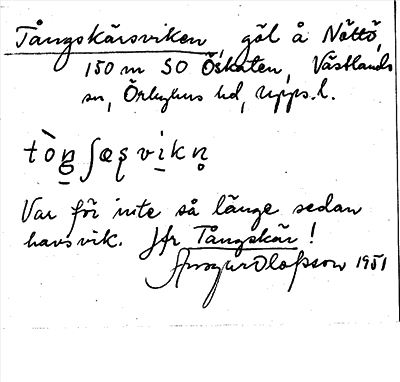 Tångskärsviken, göl å Nöttö,
150 m SO Öskaten, Västlands
sn, Örbyhus hd, Upps. l.
tòŋʃæʂvikn̥
Var för inte så länge sedan
havsvik. Jfr Tångskär!
Olofsson 1951